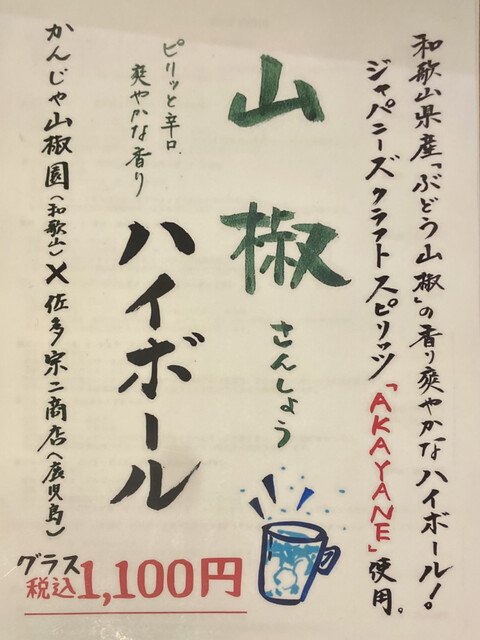 和歌山県産「ぶどう山椒」の香り爽やかなハイボール!
ジャパニーズクラフトスピリッツ「AKAYANE」使用。
山椒
さんしょう
ハイボール
ピリッと辛口、
爽やかな香り
かんじゃ山椒園(和歌山)×佐多宗二商店(鹿児島)
グラス
税込1,100円